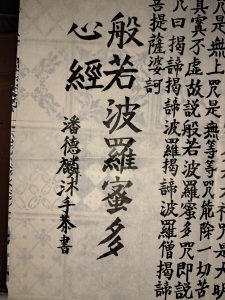 大神咒是大明
咒是無上咒是無等等咒能除一切苦
真實不虛故說般若波羅蜜多咒即說
咒曰揭諦揭諦波羅揭諦波羅僧揭諦
菩提薩婆訶
般若波羅蜜多
心經
潘德麟沐手恭書